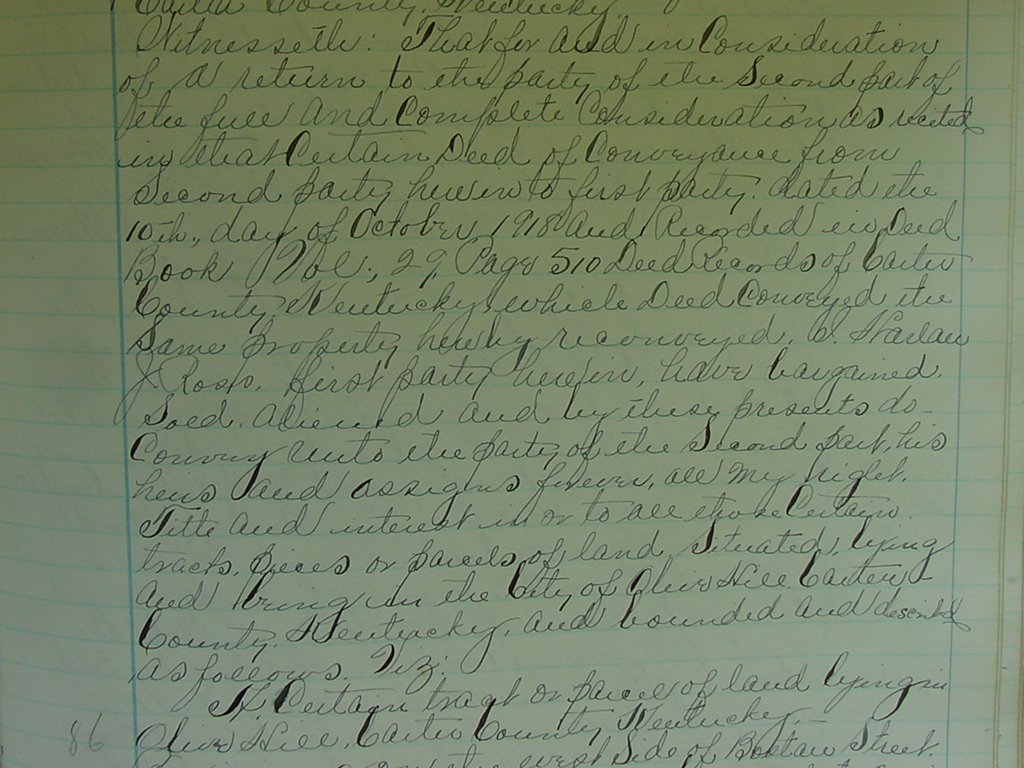 Carter County, Kentucky
Witnesseth: That for and in Consideration
of a return to the party of the Second part of
the full and Complete Consideration as recited
in that Certain Deed of Conveyance from
Second party herein to first party. dated the
10th., day of October, 1918 and Recorded in Deed
Book Vol., 29, Page 510 Deed Records of Carter
County, Kentucky, which Deed Conveyed the
Same property hereby reconveyed. C. Harlan
J. Ross, first party herein, have bargained.
Sold. aliened and by these presents do-
Convey unto the party of the Second part, his
heirs and assigns forever, all my right.
Title and interest in or to all those Certain
tracts, pieces or parcels of land, Situated, lying
and being in the City of Olive Hill Carter
County, Kentucky, and bounded and described
as follows. Viz:
A, Certain tract or parcel of land lying in
Olive Hill, Carter County, Kentucky,-
86
on the west Side of Street